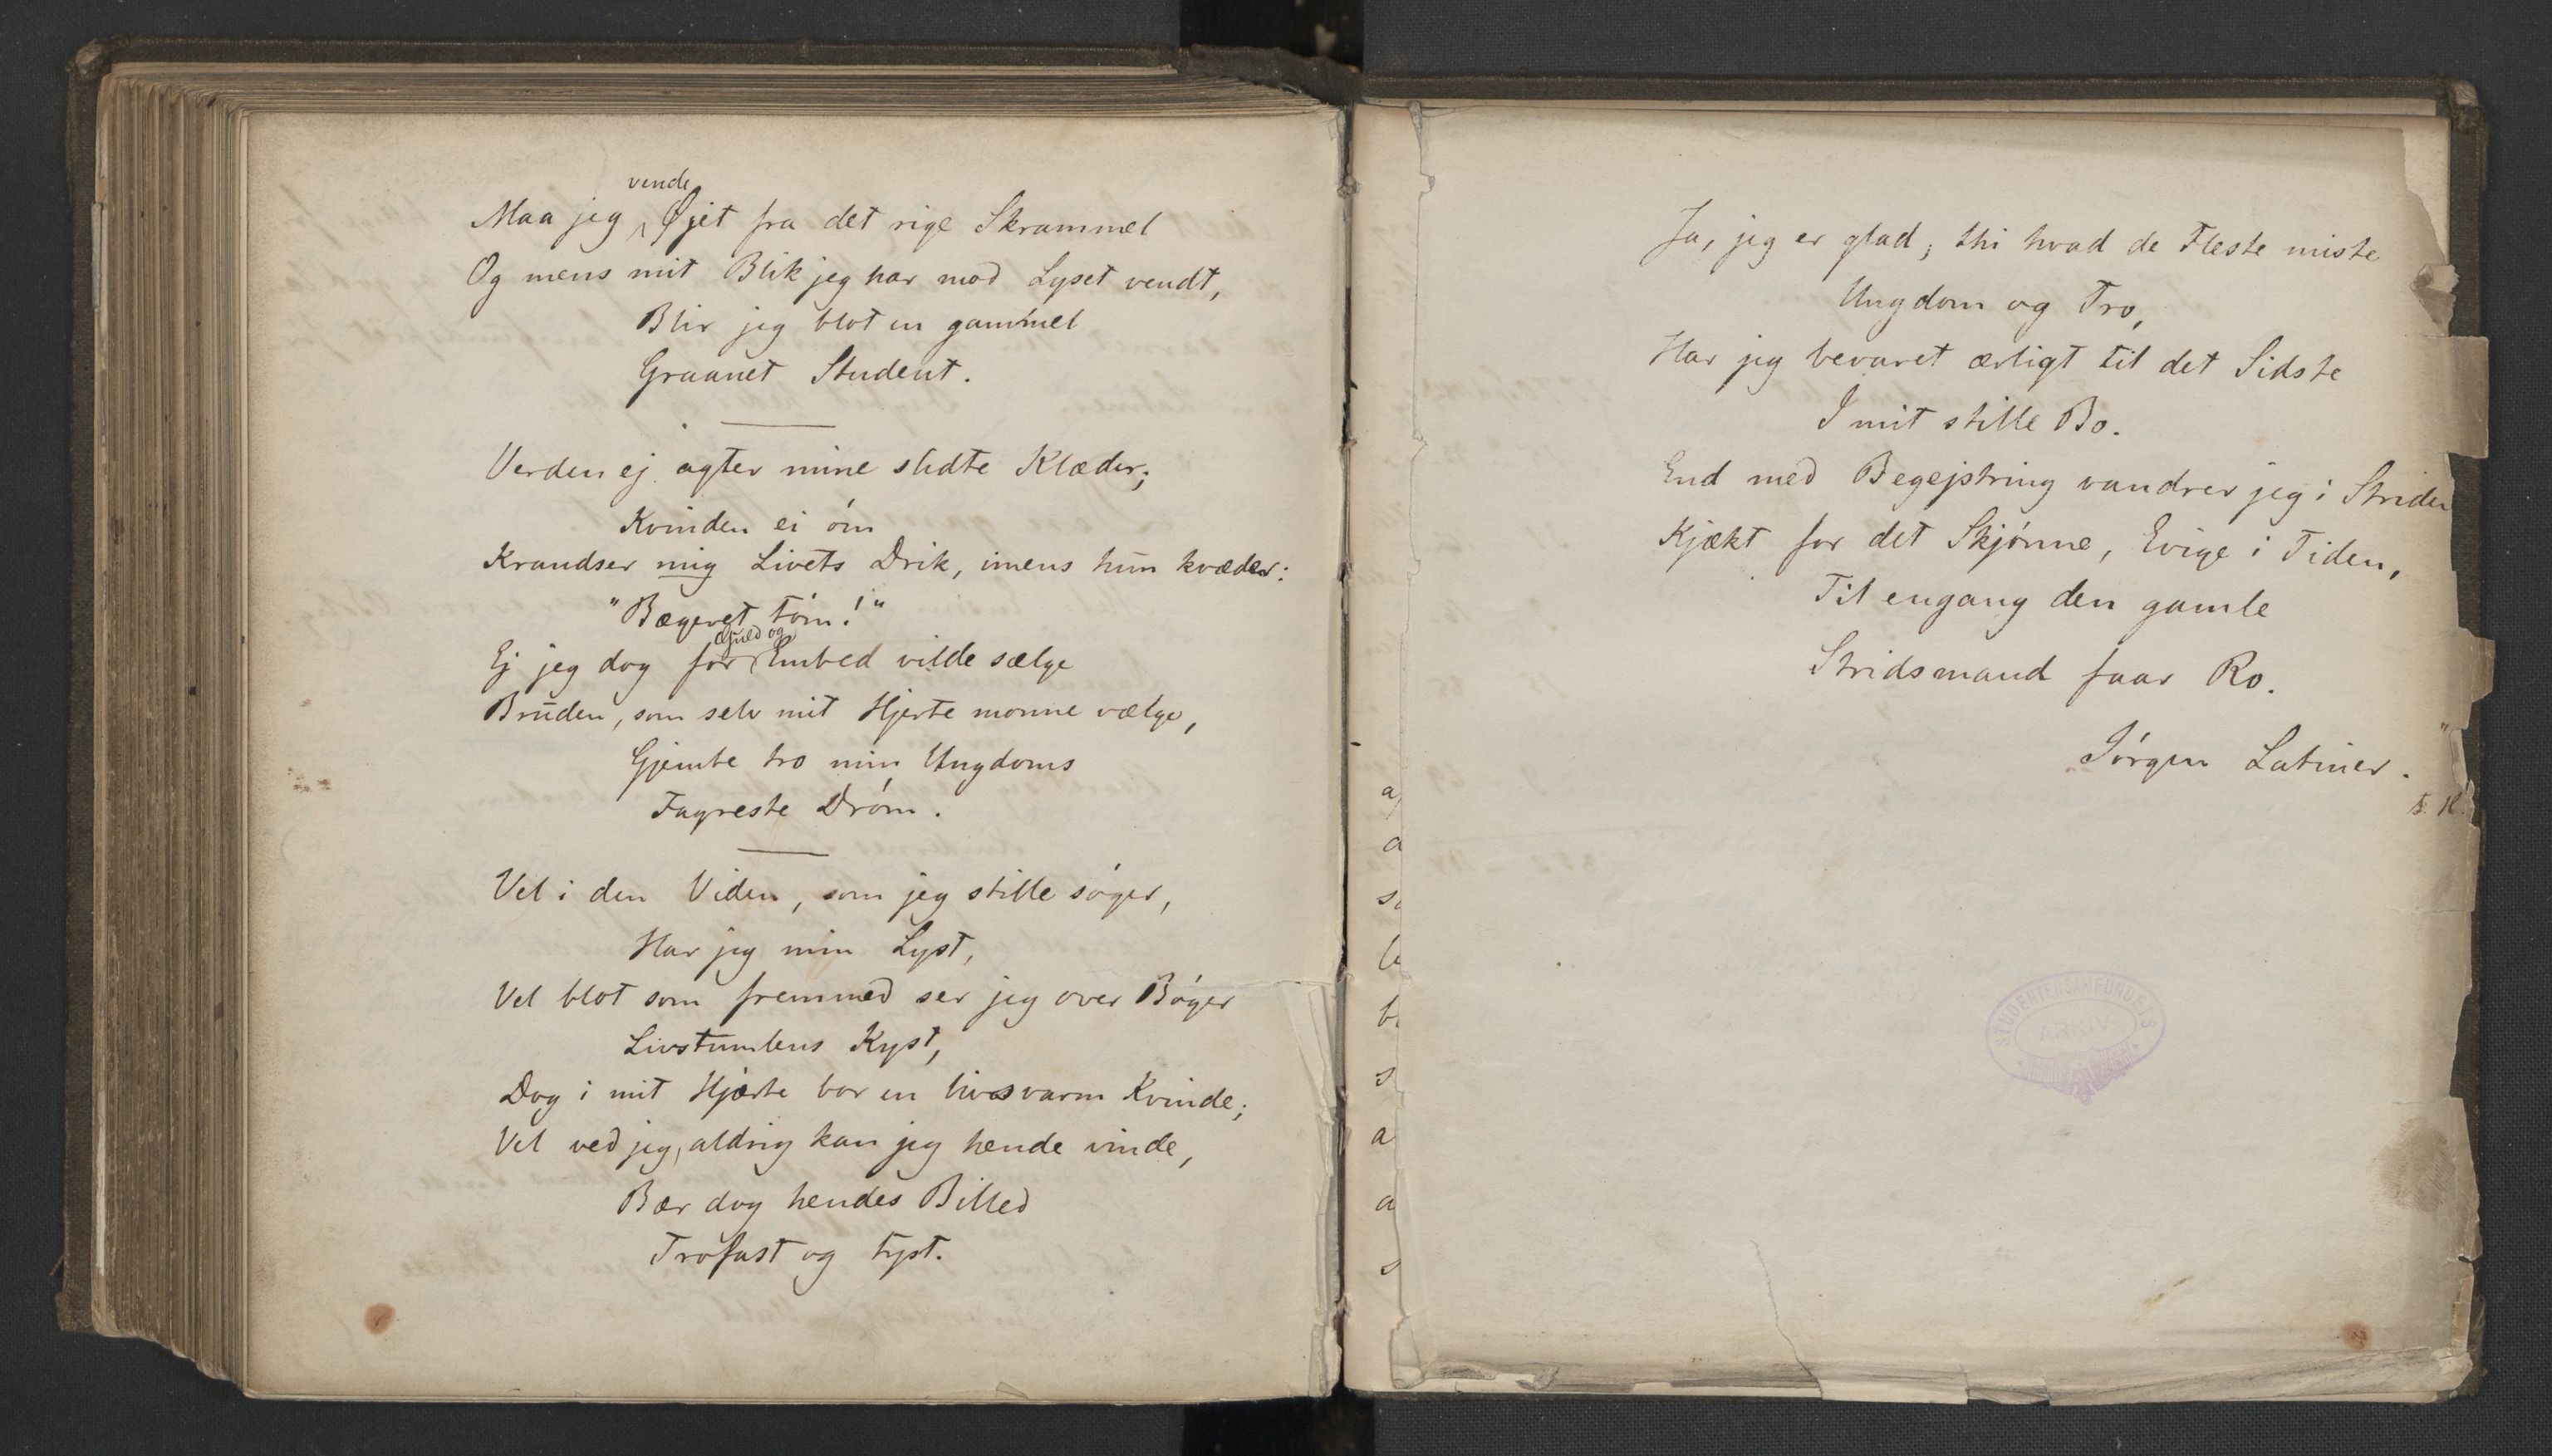 Maa jeg vende Øjet fra det rige Skrammel
Og mens mit Blik jeg har mod Lyset vendt,
Blir jeg blot en gammel
Graanet Student.
Verden ej agter mine slidte Klæder;
Kvinden ei öm
Krandser mig Livets Drik, imens hun kvæder:
"Bægeret töm!"
Ej jeg dog for Guld og Embed vilde sælge
Bruden, som selv mit Hjerte monne vælge,
Gjemte tro min Ungdoms
Fagreste Dröm.
Vel i den Viden, som jeg stille söger,
Har jeg min Lyst,
Vel blot som fremmed ser jeg over Böger
Livstumlens Kyst,
Dog i mit Hjærte bor en livsvarm Kvinde;
Vel ved jeg, aldrig kan jeg hende vinde,
Bær dog hendes Billed
Trofast og tyst.
Ja, jeg er glad; thi hvad de Fleste miste
Ungdom og Tro,
Har jeg bevaret ærligt til det Sidste
I mit stille Bo.
End med Begejstring vandrer jeg i Striden
Kjækt for det Skjönne, Evige i Tiden,
Til engang den gamle
Stridsmand faar Ro.
Jörgen Latiner.
STUDENTERSAMFUNDETS
ARKIV
a
a
s
b
b
s
a
a
s